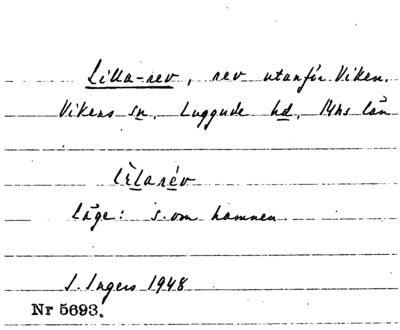 Lilla-rev, rev utanför Viken.
Vikens sn. Luggude hd. Mhs län
lìlarév
läge: s. om hamnen
I. Ingers 1948
Nr 5693.